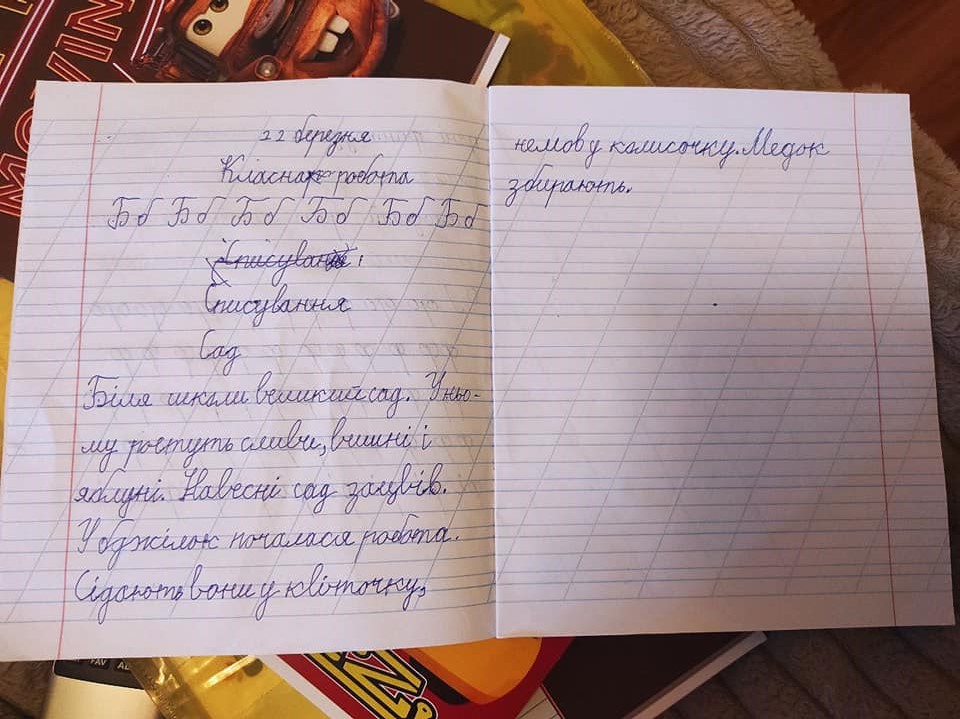 22 березня
Класна робота
Бб Бб Бб Бб Бб Бб
Списування
Списування
Сад
Біля школи великий сад. У ньо-
му ростуть сливи, вишні і
яблуні. Навесні сад зацвів.
У бджілок почалася робота.
Сідають вони у квіточку,
немов у колисочку. Медок
збирають.
MOVIN
FAV